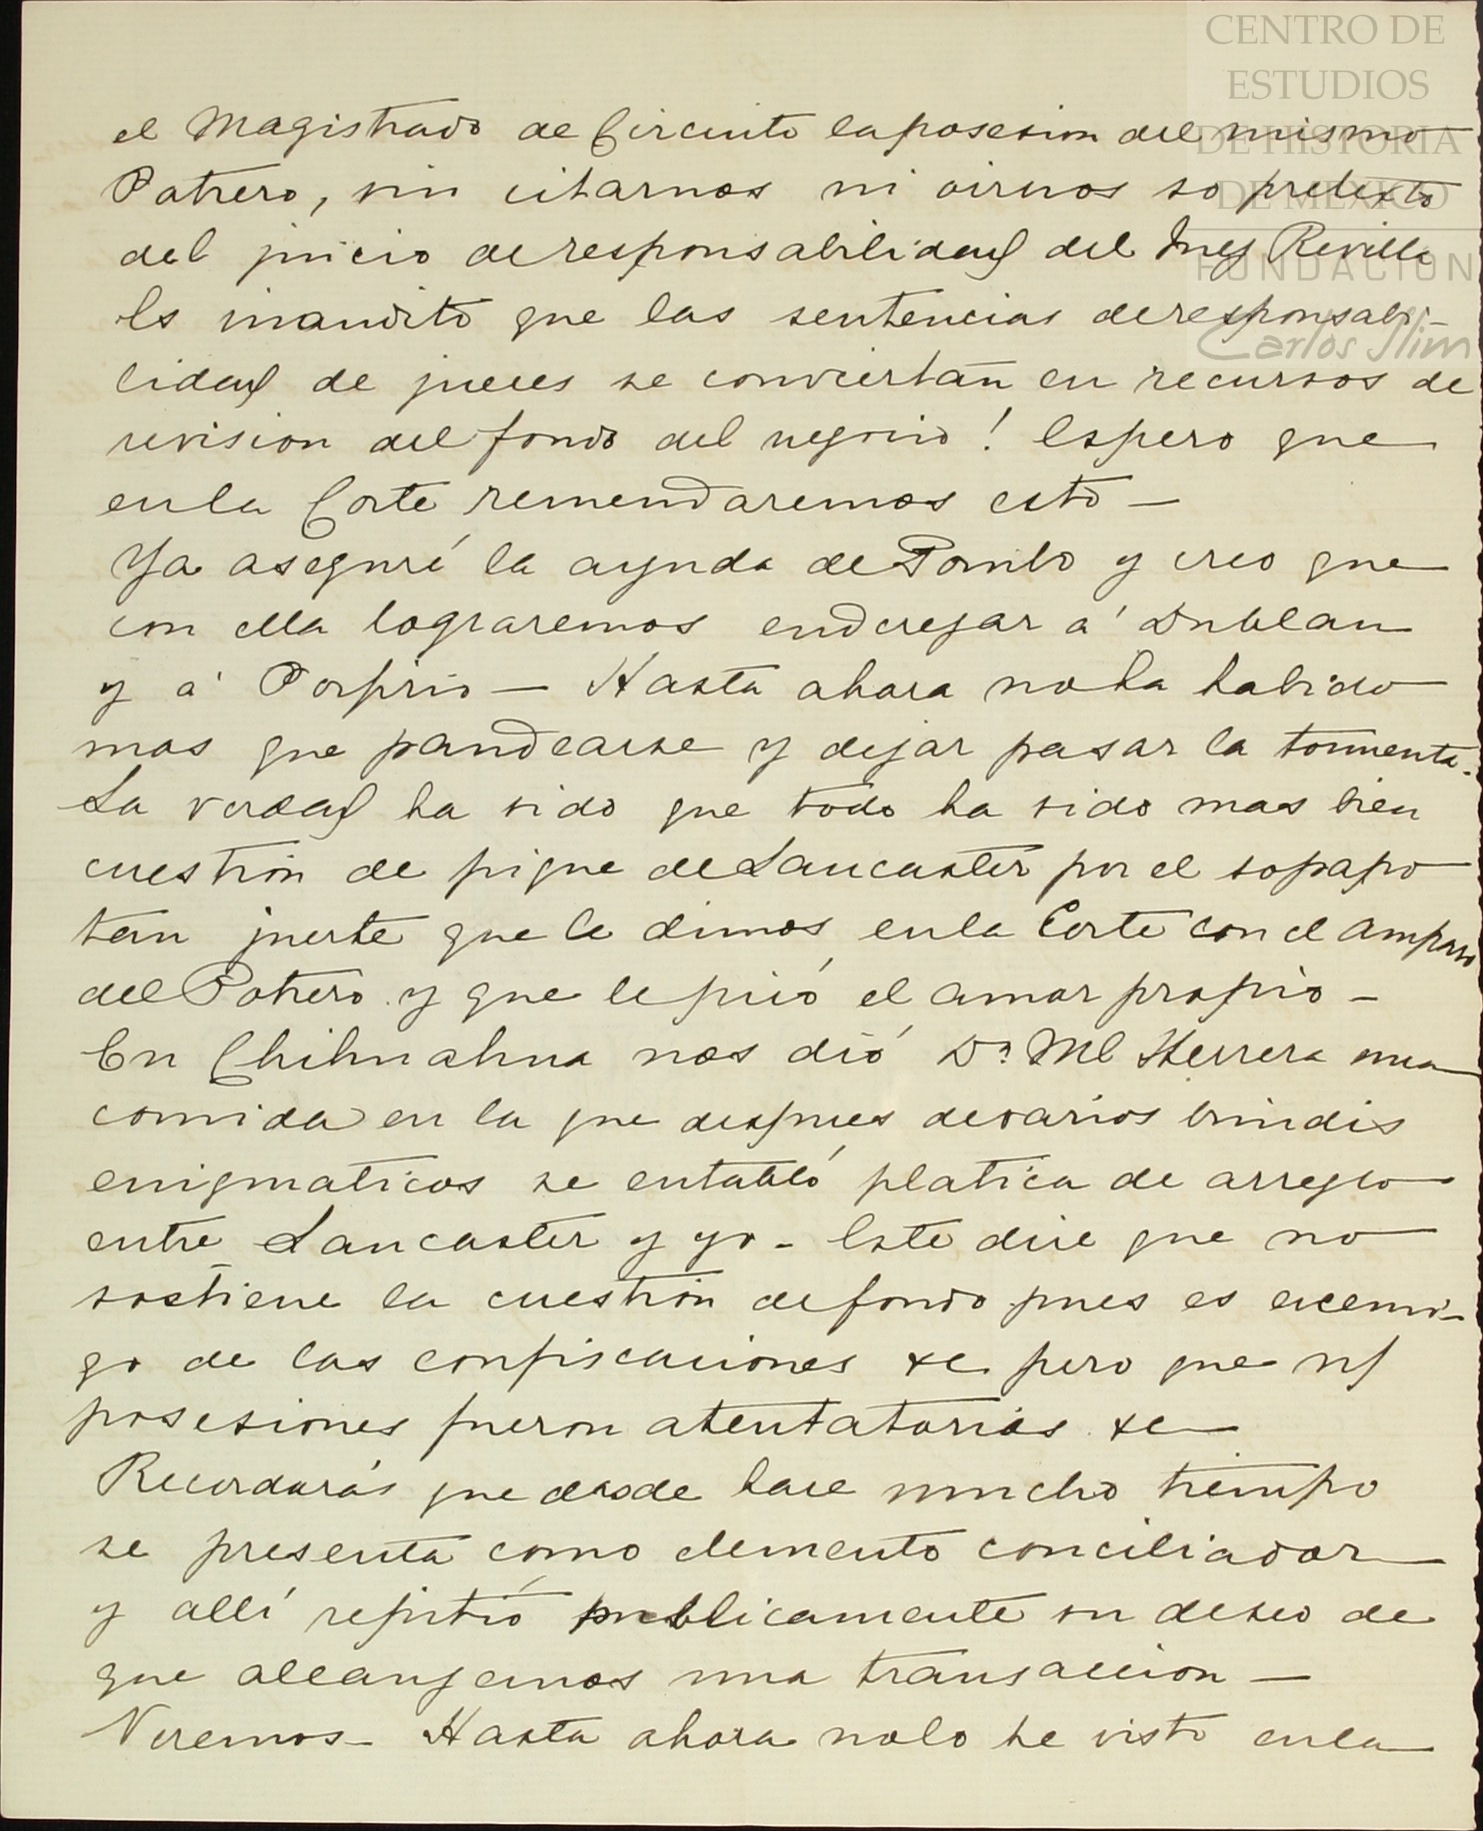 CENTRO DE
ESTUDIOS
DE HISTORIA
DE MÉXICO
FUNDACIÓN
Carlos Slim
el Magistrado de Circuito la posesion del mismo
Potrero, sin citarnos ni oirnos so pretexto
del juicio de responsabilidad del Juez Revilla
Es inaudito que las sentencias de responsabi-
lidad de jueces se conviertan en recursos de
revision del fondo del negocio! Espero que
en la Corte remendaremos esto —
Ya aseguré la ayuda de Pombo y creo que
con ella lograremos enderezar á Dublan
y á Porfirio — Hasta ahora no ha habido
mas que pandearse y dejar pasar la tormenta.
La verdad ha sido que todo ha sido mas bien
cuestion de pique de Lancaster por el sopapo
tan fuerte que le dimos en la Corte con el amparo
del Potrero y que le picó el amor propio —
En Chihuahua nos dió Dn Ml Herrera una
comida en la que despues de varios brindis
enigmaticos se entabló platica de arreglo
entre Lancaster y yo — Este dice que no
sostiene la cuestion de fondo pues es enemi-
go de las confiscaciones &c pero que n/
posesiones fueron atentatorias &c
Recordarás que desde hace mucho tiempo
se presenta como elemento conciliador
y allí repitió publicamente su deseo de
que alcanzemos una transaccion —
Veremos — Hasta ahora no lo he visto en la